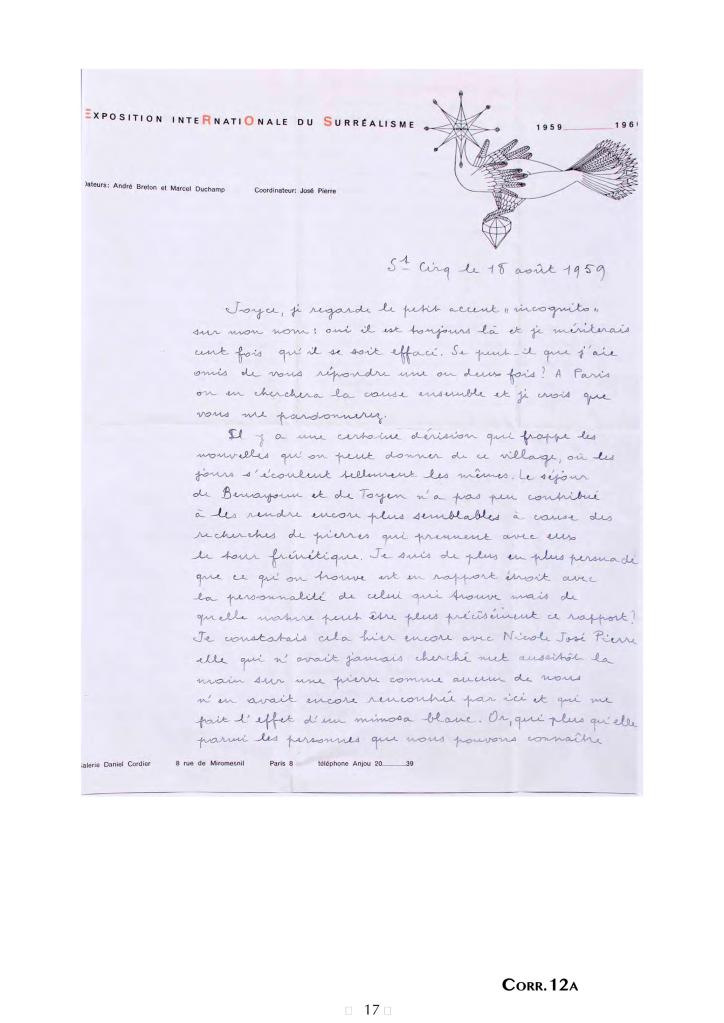 EXPOSITION INTERNATIONALE DU SURRÉALISME
1959 196
ateurs: André Breton et Marcel Duchamp Coordinateur: José Pierre
St Cirq le 18 août 1959
Joyce, je regarde le petit accent "incognito"
sur mon nom : oui il est toujours là et je mériterais
cent fois qu'il se soit effacé. Se peut-il que j'aie
omis de vous répondre une ou deux fois? A Paris
on en cherchera la cause ensemble et je crois que
vous me pardonnerez.
Il y a une certaine dérision qui frappe les
nouvelles qu'on peut donner de ce village, où les
jours s'écoulent tellement les mêmes. Le séjour
de Benayoun et de Toyen n'a pas peu contribué
à les rendre encore plus semblables à cause des
recherches de pierres qui prennent avec eux
le tour frénétique. Je suis de plus en plus persuadé
que ce qu'on trouve est en rapport étroit avec
la personnalité de celui qui trouve mais de
quelle nature peut être plus précisément ce rapport?
Je constatais cela hier encore avec Nicole José Pierre
elle qui n'avait jamais cherché met aussitôt la
main sur une pierre comme aucun de nous
n'en avait encore rencontré par ici et qui me
fait l'effet d'un mimosa blanc. Or, qui plus qu'elle
parmi les personnes que nous pouvons connaître
alerie Daniel Cordier 8 rue de Miromesnil Paris 8 téléphone Anjou 20 39
CORR.12A
17